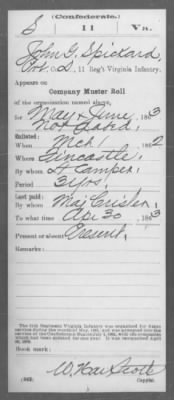 (Confederate.)
S 11 Va.
John G. Spickard
Pvt, Co. D, 11 Reg't Virginia Infantry.
Appears on
Company Muster Roll
of the organization named above,
for May & June, 1863
not dated,
Enlisted:
When Mch 1, 1862
Where Fincastle
By whom Lt Camper
Period 3 yrs.
Last paid:
By whom Maj Crisler
To what time Apr 30, 1863
Present or absent Present,
Remarks:
Book mark:
(642)
Copyist.